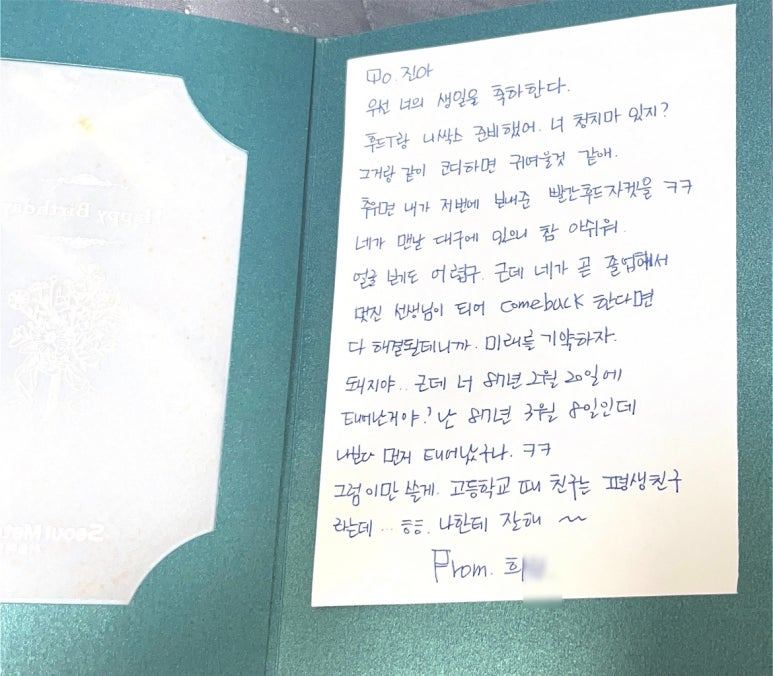 To. 진아
우선 너의 생일을 축하한다.
후드T랑 니삭스 준비했어. 너 청치마 있지?
그거랑 같이 코디하면 귀여울것 같애.
추우면 내가 저번에 보내준 빨간후드자켓을 ㅋㅋ
네가 맨날 대구에 있으니 참 아쉬워.
얼굴 보기도 어렵구. 근데 네가 곧 졸업해서
멋진 선생님이 되어 comeback 한다면
다 해결될테니까. 미래를 기약하자.
돼지야.. 근데 너 87년 2월 20일에
태어난거야? 난 87년 3월 8일인데
나보다 먼저 태어났구나. ㅋㅋ
그럼 이만 쓸게. 고등학교 때 친구는 평생친구
라는데... ㅎㅎ. 나한테 잘해 ~
From. 희
Happy Birthday
Seoul